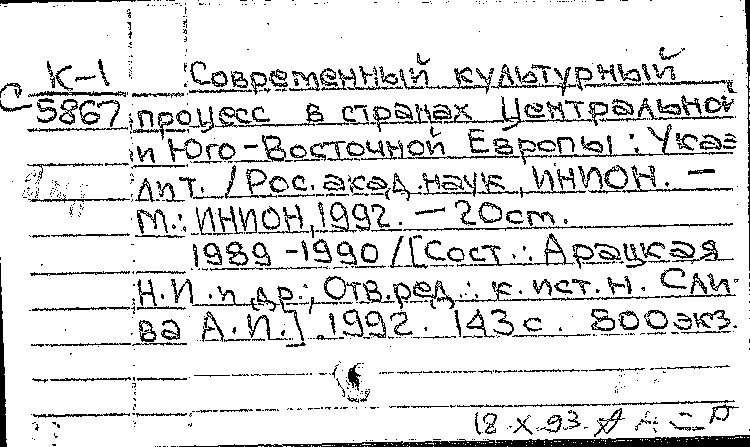 К-1
С 5867
Современный культурный
процесс в странах Центральной
и Юго-Восточной Европы: Указ
лит. /Рос. акад. наук, ИНИОН. —
М.: ИНИОН, 1992. — 20 cm.
1989-1990 /[Сост.: Арацкая
Н.И. и др.; Отв. ред.: к. ист. н. Сли-
ва А.И.]. 1992. 143 с. 800 экз.
18.X.93.